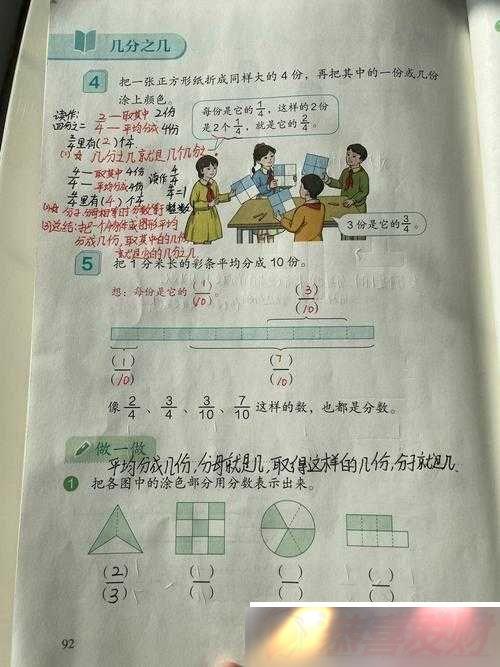 几分之几
4 把一张正方形纸折成同样大的4份，再把其中的一份或几份
涂上颜色。
每份是它的1/4，这样的2份
是2个1/4，就是它的2/4。
读作：
四分之二
2—取其中2份
4—平均分成4份
2/4里有（2）个1/4
几分之几就是几个几分之一
4—取其中4份 读作
4—平均分成4份 4/4=1
4/4里有（4）个1/4
分子分母相等的分数等
总结：把一个物体或图形平均
分成几份，取其中的几份
就是它的几分之几
3份是它的3/4。
5 把1分米长的彩条平均分成10份。
想：每份是它的(1)/(10)。
(3)/(10)
(1)/(10) (7)/(10)
像2/4、3/4、3/10、7/10这样的数，也都是分数。
做一做
平均分成几份，分母就是几，取得这样的几份，分子就是几.
1 把各图中的涂色部分用分数表示出来。
(2)/(3) ( )/( ) ( )/( ) ( )/( )
92